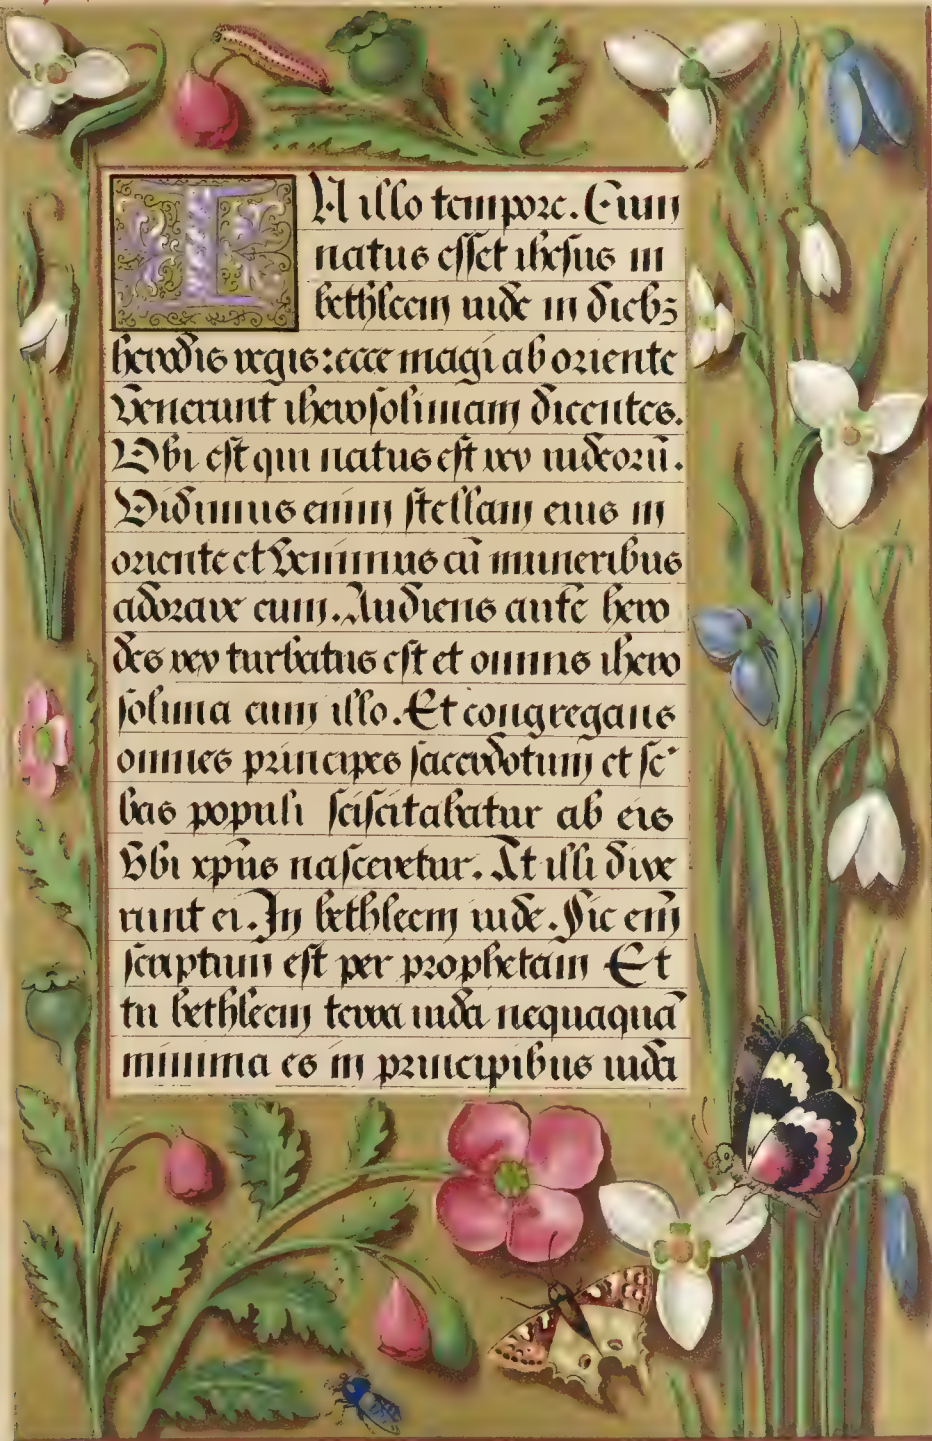 IN illo tempore. Cum
natus esset ihesus in
bethleem iude in diebꝫ
herodis regis: ecce magi ab oriente
venerunt iherosolimam dicentes.
Vbi est qui natus est rex iudeorū.
Vidimus enim stellam eius in
oriente et venimus cū muneribus
adorare eum. Audiens autē hero
des rex turbatus est et omnis ihero
solima cum illo. Et congregans
omnes principes sacerdotum et sc
bas populi sciscitabatur ab eis
vbi xp̄us nasceretur. At illi dixe
runt ei. In bethleem iude. Sic em̄
scriptum est per prophetam Et
tu bethleem terra iuda nequaquā
minima es in principibus iuda